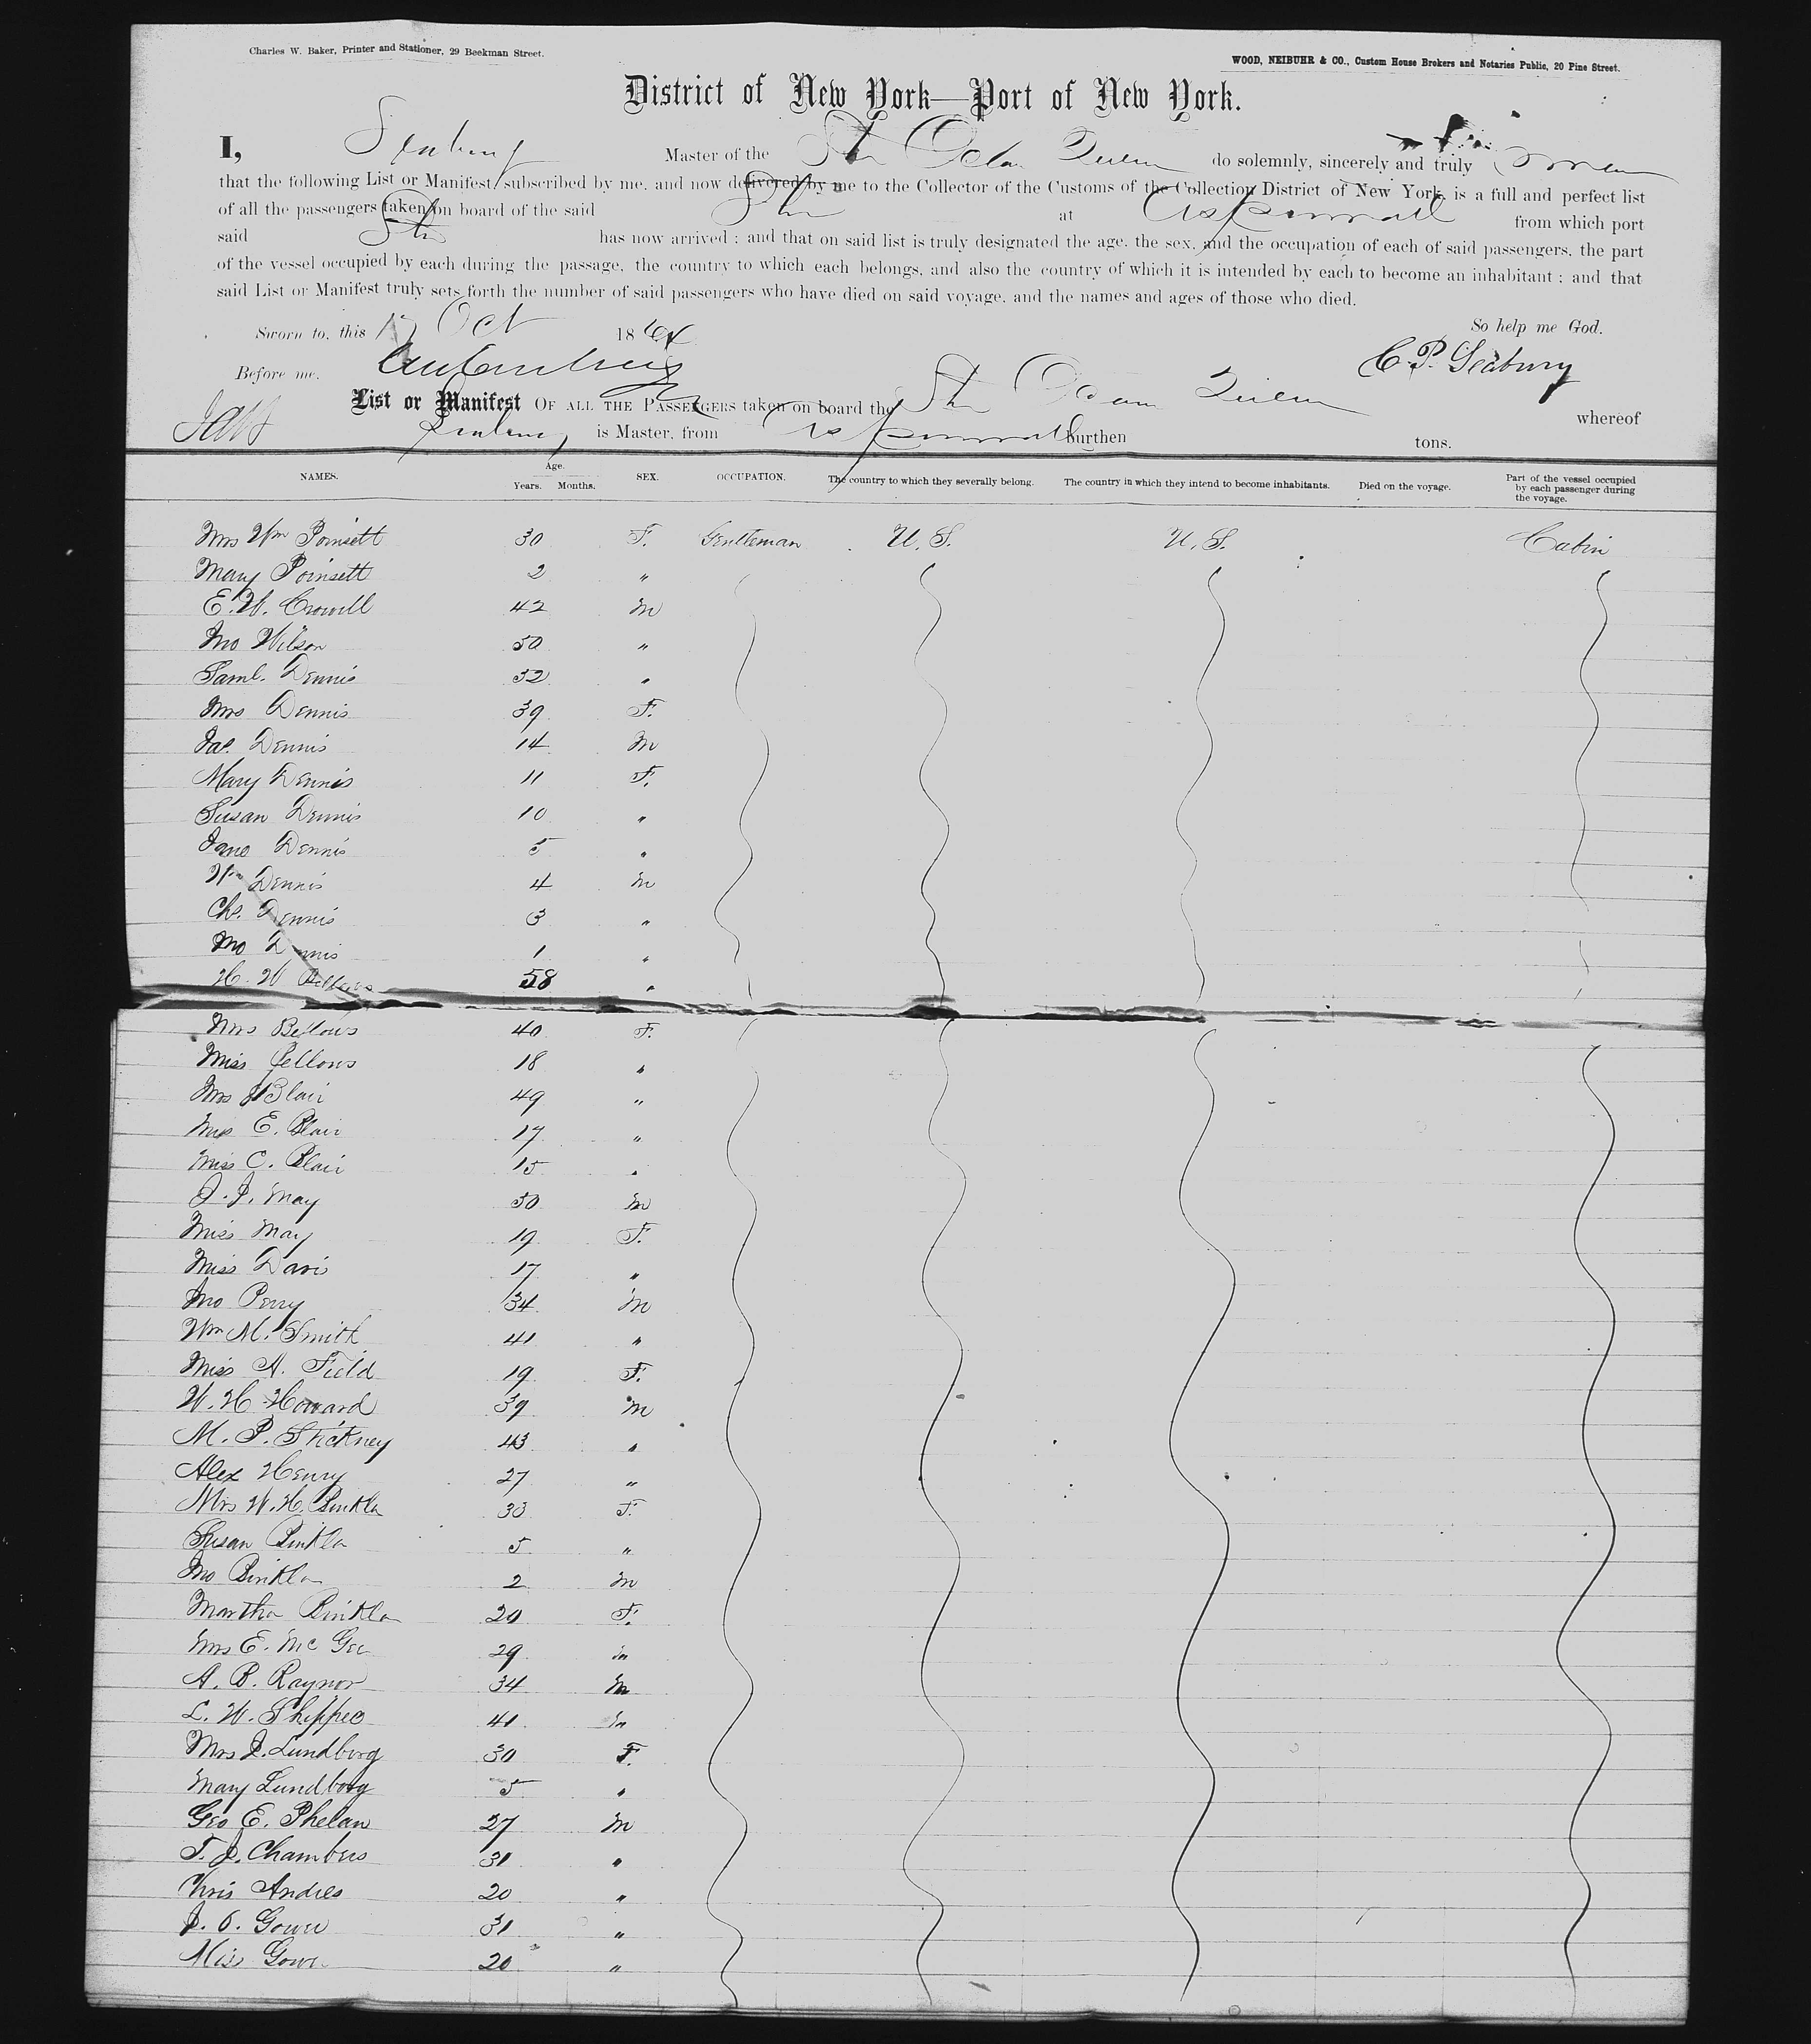 Charles W. Baker, Printer and Stationer, 29 Beekman Street.
WOOD, NEIBUHR & CO., Custom House Brokers and Notaries Public, 20 Pine Street.
District of New York—Port of New York.
I, Seabury Master of the Str Ocean Queen do solemnly, sincerely and truly swear
that the following List or Manifest, subscribed by me, and now delivered by me to the Collector of the Customs of the Collection District of New York, is a full and perfect list
of all the passengers taken on board of the said Str at Aspinwall from which port
said Str has now arrived ; and that on said list is truly designated the age, the sex, and the occupation of each of said passengers, the part
of the vessel occupied by each during the passage, the country to which each belongs, and also the country of which it is intended by each to become an inhabitant ; and that
said List or Manifest truly sets forth the number of said passengers who have died on said voyage, and the names and ages of those who died.
So help me God.
Sworn to, this 17 Oct 1864
C. P. Seabury
Before me,
List or Manifest OF ALL THE PASSENGERS taken on board the Str Ocean Queen whereof
Seabury is Master, from Aspinwall burthen tons.
NAMES. Age. Years. Months. SEX. OCCUPATION. The country to which they severally belong. The country in which they intend to become inhabitants. Died on the voyage. Part of the vessel occupied by each passenger during the voyage.
Mrs Wm Poinsett 30 F. Gentleman U.S. U.S. Cabin
Mary Poinsett 2 "
E. W. Crowell 42 M
Jno Wilson 50 "
Saml. Dennis 52 "
Mrs Dennis 39 F.
Jas. Dennis 14 M
Mary Dennis 11 F.
Susan Dennis 10 "
Jane Dennis 5 "
Wm Dennis 4 M
Chs. Dennis 3 "
Jno Dennis 1 "
H. W Bellows 58 "
Mrs Bellows 40 F.
Miss Bellows 18 "
Mrs Blair 49 "
Miss E. Blair 17 "
Miss C. Blair 15 "
J. J. May 50 M
Miss May 19 F.
Miss Davis 17 "
Jno Perry 34 M
Wm M. Smith 41 "
Miss A. Field 19 F.
W. H Howard 39 M
M. P. Stickney 43 "
Alex Henry 27 "
Mrs W. H. Binkla 30 F.
Susan Binkla 5 "
Jno Binkla 2 M
Martha Binkla 20 F.
Mrs E. McGee 29 "
A. B. Raynor 34 M
L. W. Shippee 41 M
Mrs J. Lundborg 30 F.
Mary Lundborg 5 "
Geo E. Phelan 27 M
T. J. Chambers 31 "
Chris Andres 20 "
J. O. Gower 31 "
Miss Gower 20 "